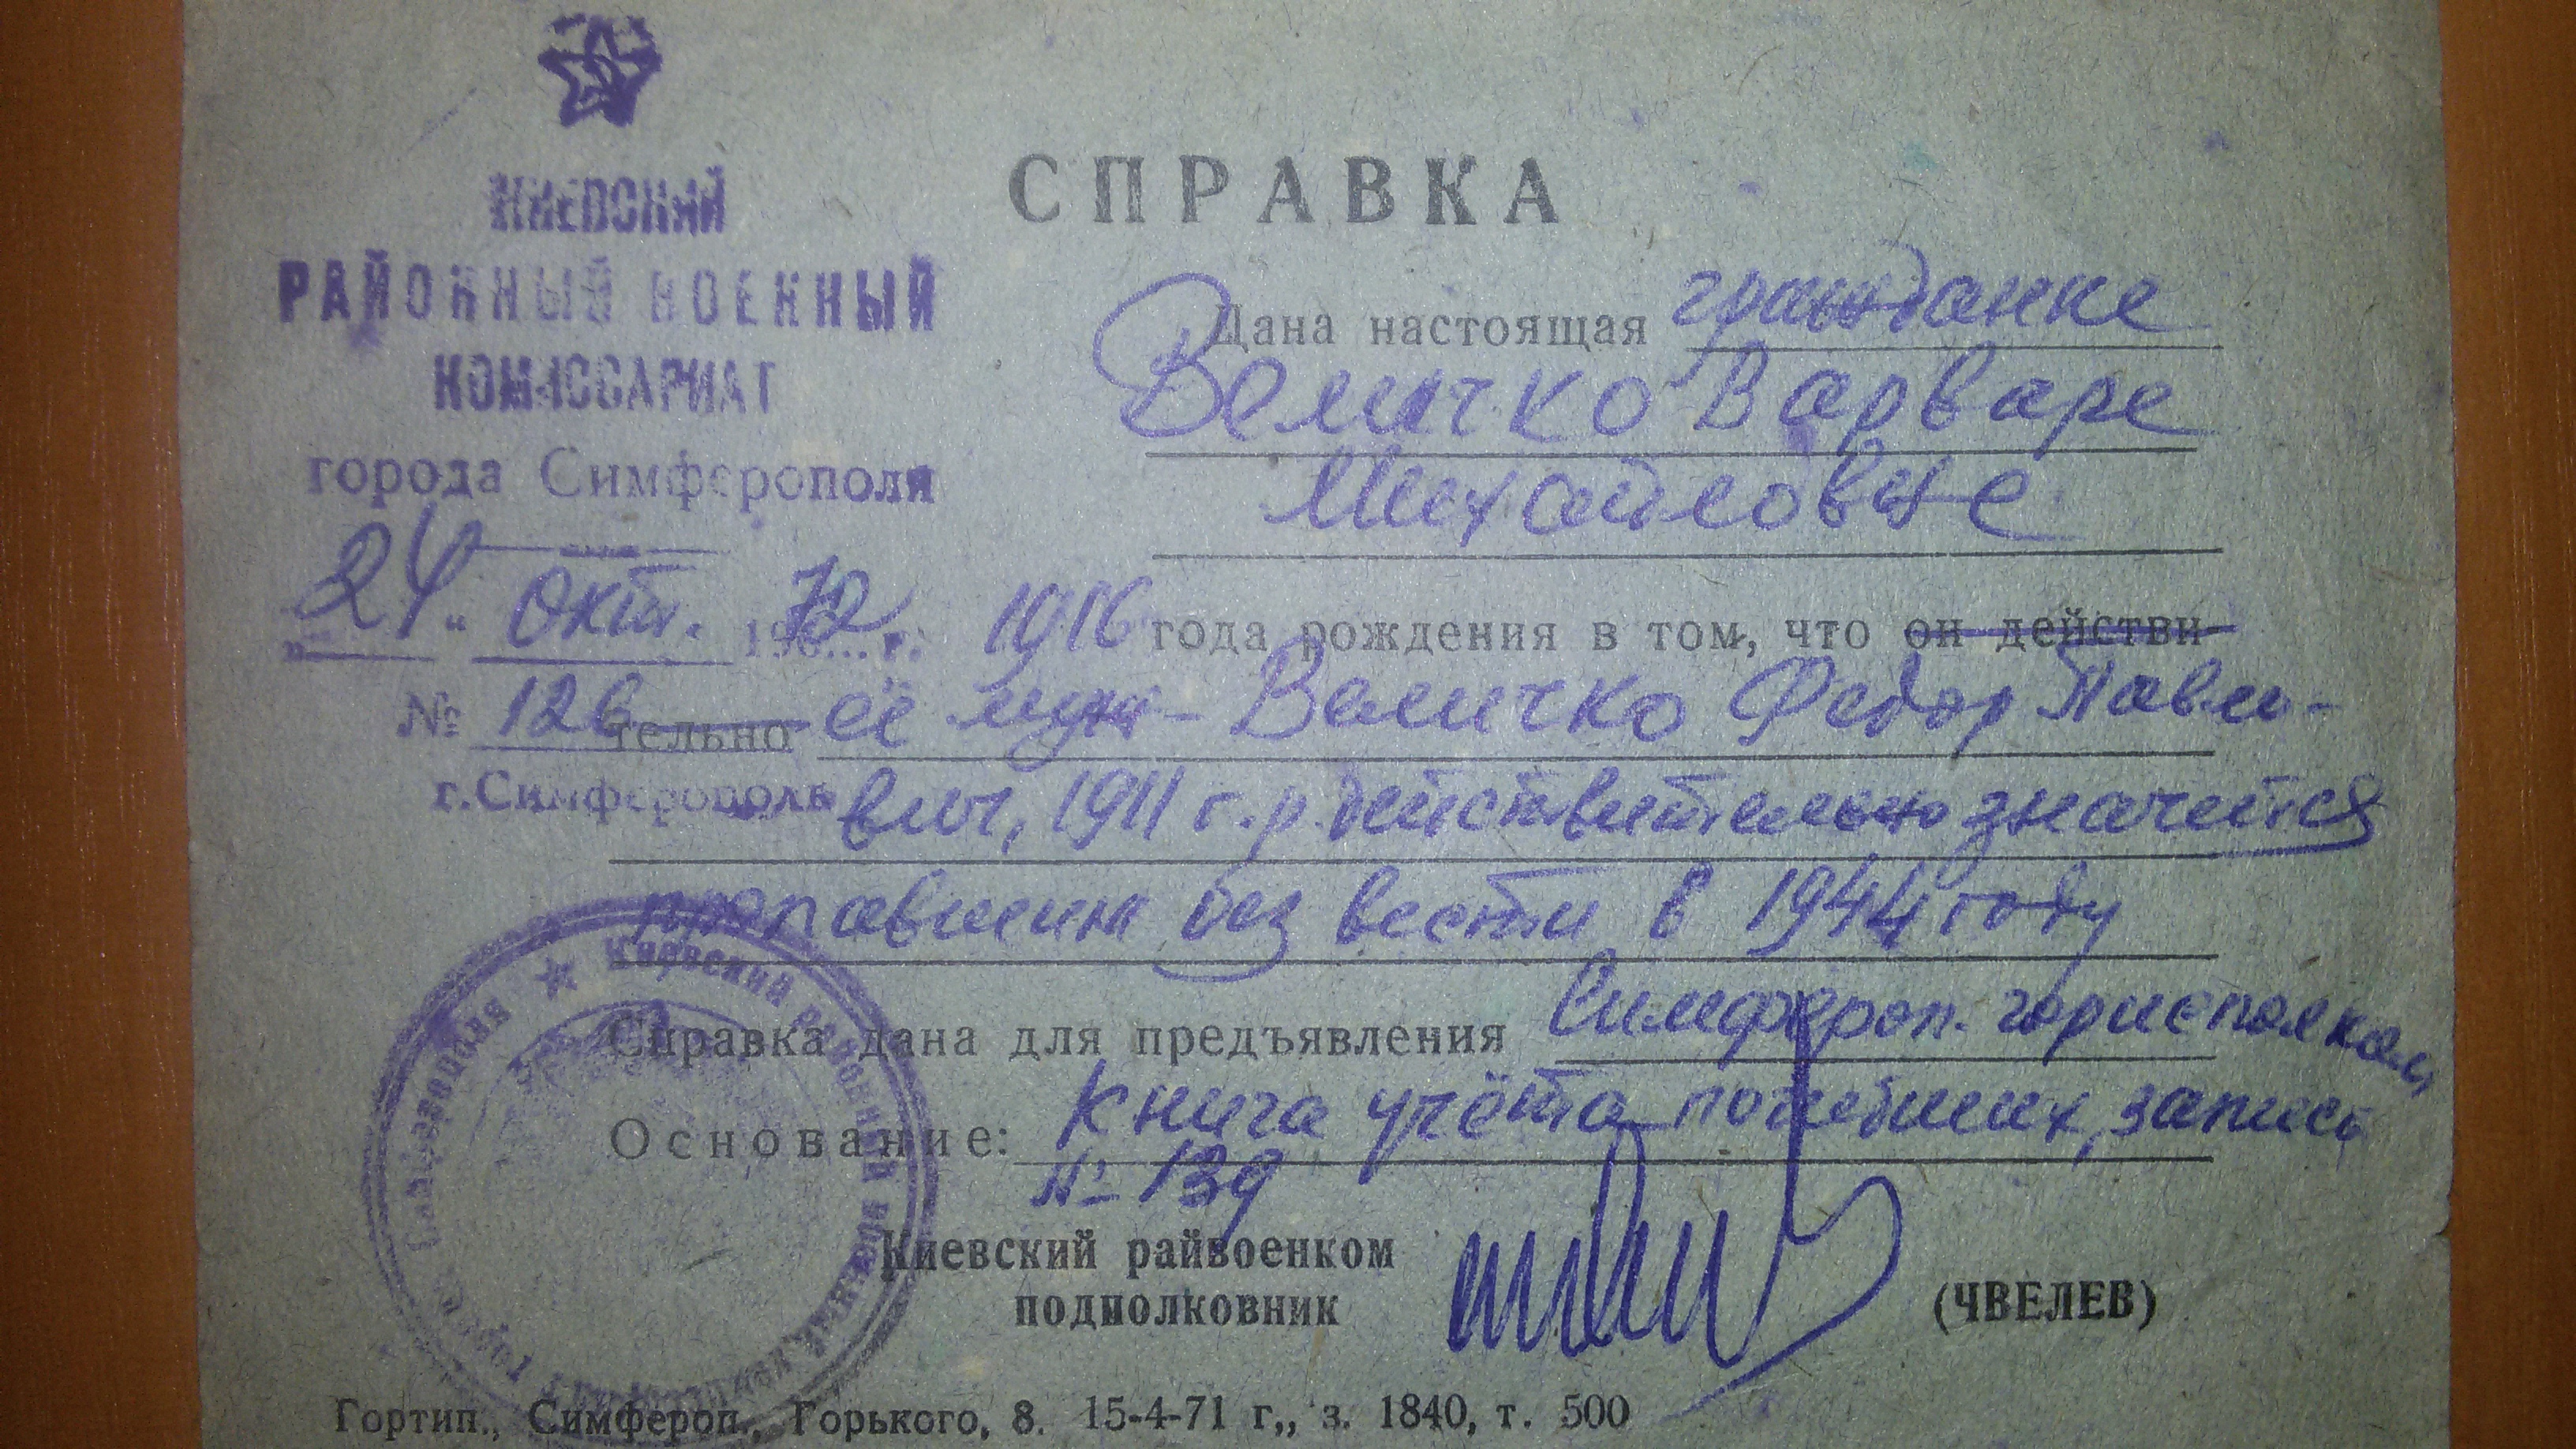 КИЕВСКИЙ
РАЙОННЫЙ ВОЕННЫЙ
КОМИССАРИАТ
города Симферополя
„24“ окт. 1972 г.
№ 126
г.Симферополь
СПРАВКА
Дана настоящая гражданке
Величко Варваре
Михайловне
1916 года рождения в том, что он действи-
тельно её муж - Величко Федор Павло-
вич, 1911 г.р. действительно значится
пропавшим без вести в 1944 году
Справка дана для предъявления Симфероп. горисполком
Основание: Книга учёта погибших, запись
№ 139
Киевский райвоенком
подполковник
(ЧВЕЛЕВ)
Киевский районный военный комиссариат города Симферополя
Гортип., Симфероп., Горького, 8. 15-4-71 г,, з. 1840, т. 500